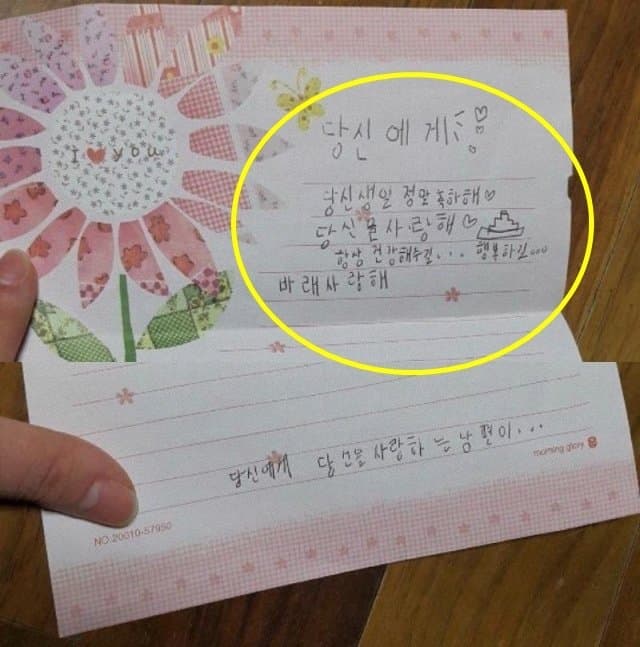 I ♥ you
당신에게
당신생일 정말 축하해♡
당신을사랑해♡
항상 건강해주길... 행복하길...
바래사랑해
당신에게 당신을사랑하는남편이...
morning glory
NO.20010-57950